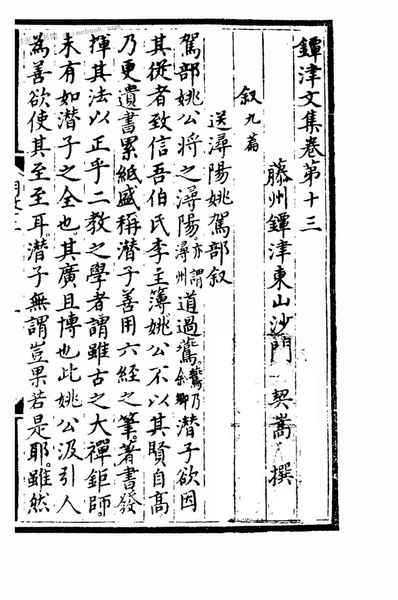 鐔津文集卷第十三
藤州鐔津東山沙門 契嵩 撰
叙九篇
送潯陽姚駕部叙
駕部姚公將之潯陽亦謂潯州道過鵉鵉乃余鄉潜子欲因
其從者致信吾伯氏李主簿姚公不以其賢自高
乃更遺書累紙盛稱潜子善用六經之筆著書發
揮其法以正乎二教之學者謂雖古之大禪鉅師
未有如潜子之全也其廣且博也此姚公汲引人
為善欲使其至至耳潜子無謂豈果若是耶雖然